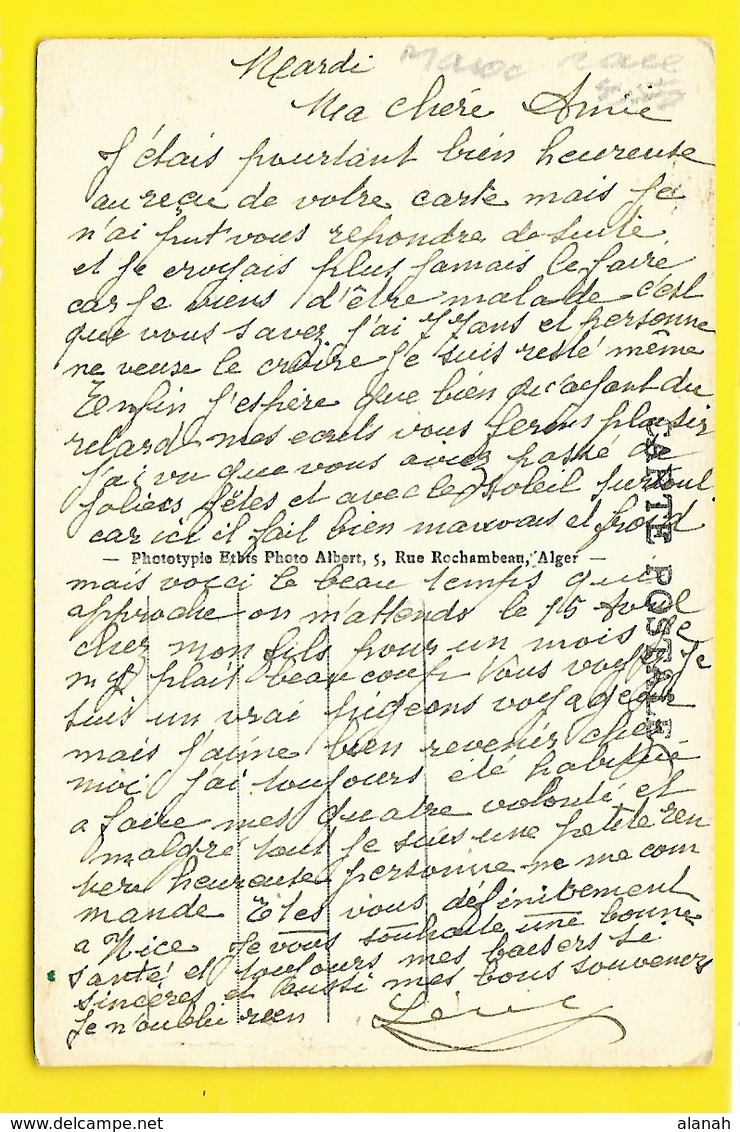 Mardi
Maroc
Ma chere Amie
J'étais pourtant bien heureuse
au reçu de votre carte mais je
n'ai put vous repondre de suite
et je croyais plus jamais le faire
car je viens d'être malade c'est
que vous savez j'ai 77 ans et personne
ne veuse le croire je suis resté même
Enfin j'espère que bien qu'ayant du
retard mes ecrits vous ferons plaisir
J'ai vu que vous aviez passé de
jolies fêtes et avec le soleil surtout
car ici il fait bien mauvais et froid
— Phototypie Etbts Photo Albert, 5, Rue Rochambeau, Alger —
CARTE POSTALE
mais voici le beau temps qui
approche on m'attends le 15 Avril
chez mon fils pour un mois je
m'y plait beaucoup Vous voyez je
suis un vrai pigeons voyageur
mais j'aime bien revenir chez
moi J'ai toujours été habitué
a faire mes quatre volonté et
malgré tout je suis une petite ren
tière heureuse personne ne me com
mande Etes vous définitement
a Nice Je vous souhaite une bonne
santé et toujours mes baisers si
sincères et aussi mes bons souvenirs
Je n'oubli rien
alanah